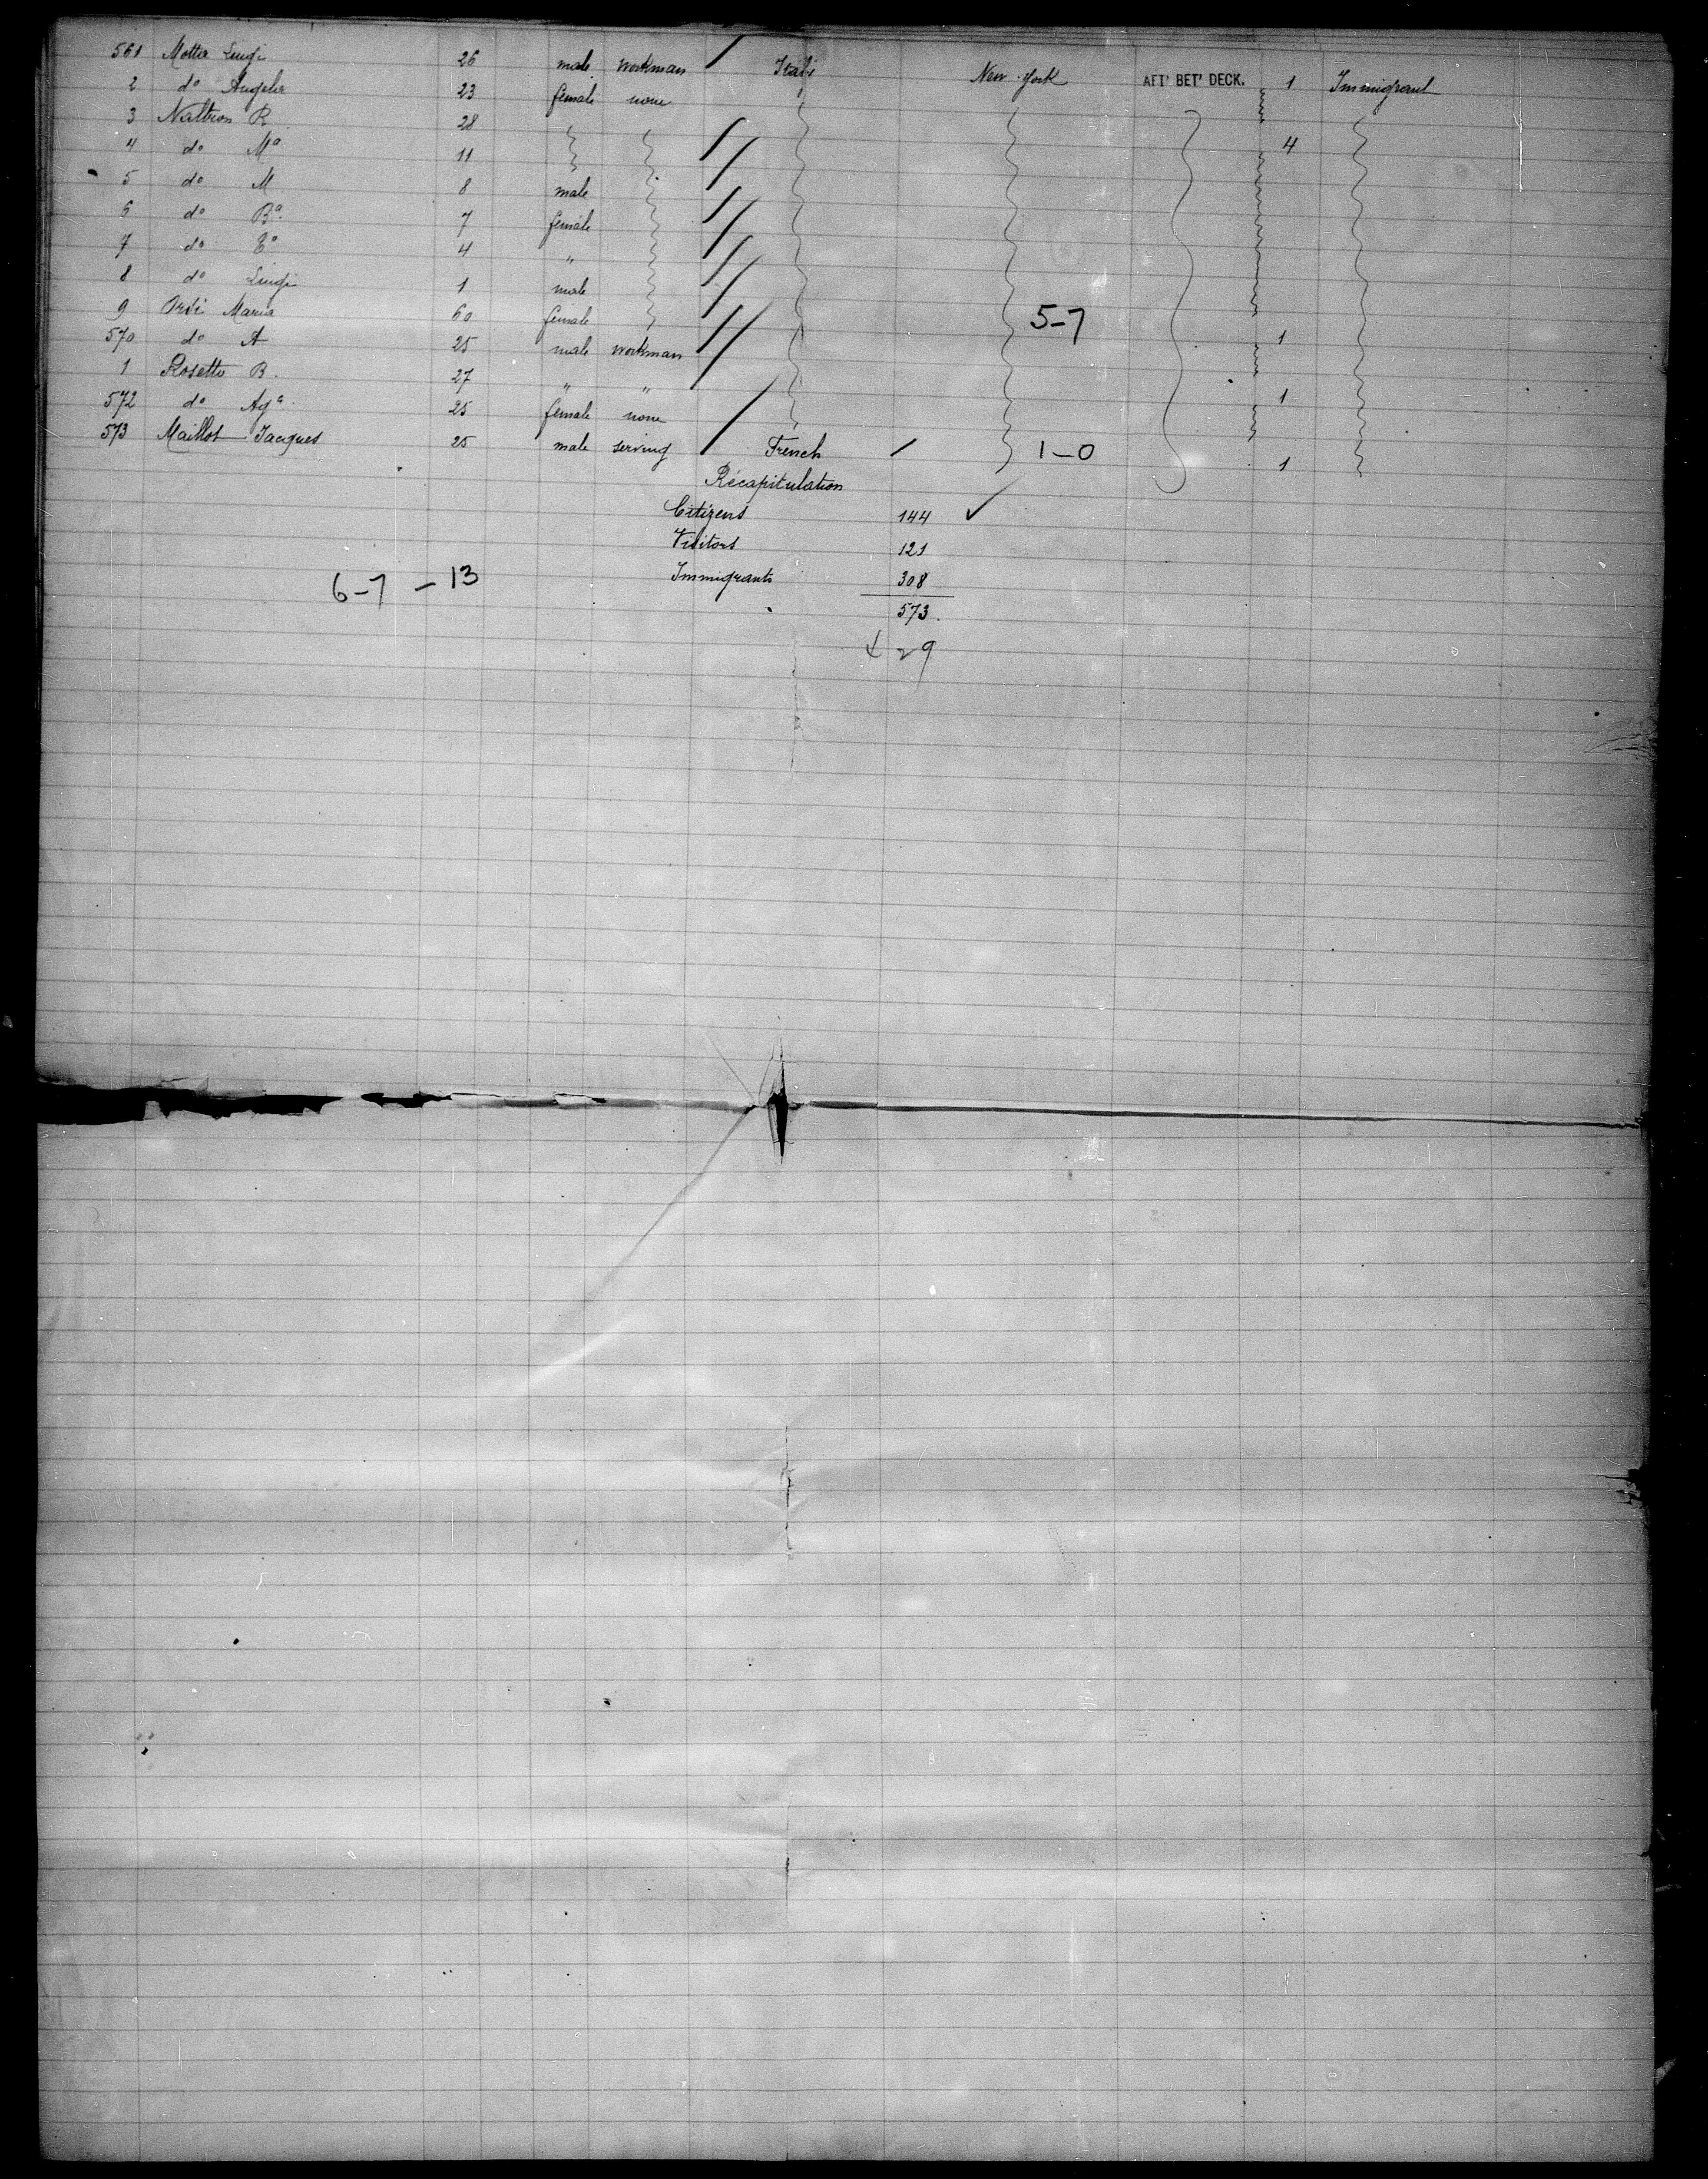 561 Motta Luigi 26 male workman Itali New-York AFT' BET' DECK. 1 Immigrant
2 do Angela 23 female none
3 R 28
4 do Ma 11 4
5 do M 8 male
6 do Ba 7 female
7 do Ea 4 "
8 do Luigi 1 male
9 Orsi Maria 60 female 5-7
570 do A 25 male workman 1
1 Rosetto B. 27 " "
572 do Aga 25 female none 1
573 Maillot Jacques 25 male serving French 1-0 1
Récapitulation
Citizens 144 ✓
Visitors 121
6-7 - 13 Immigrants 308
573.
29